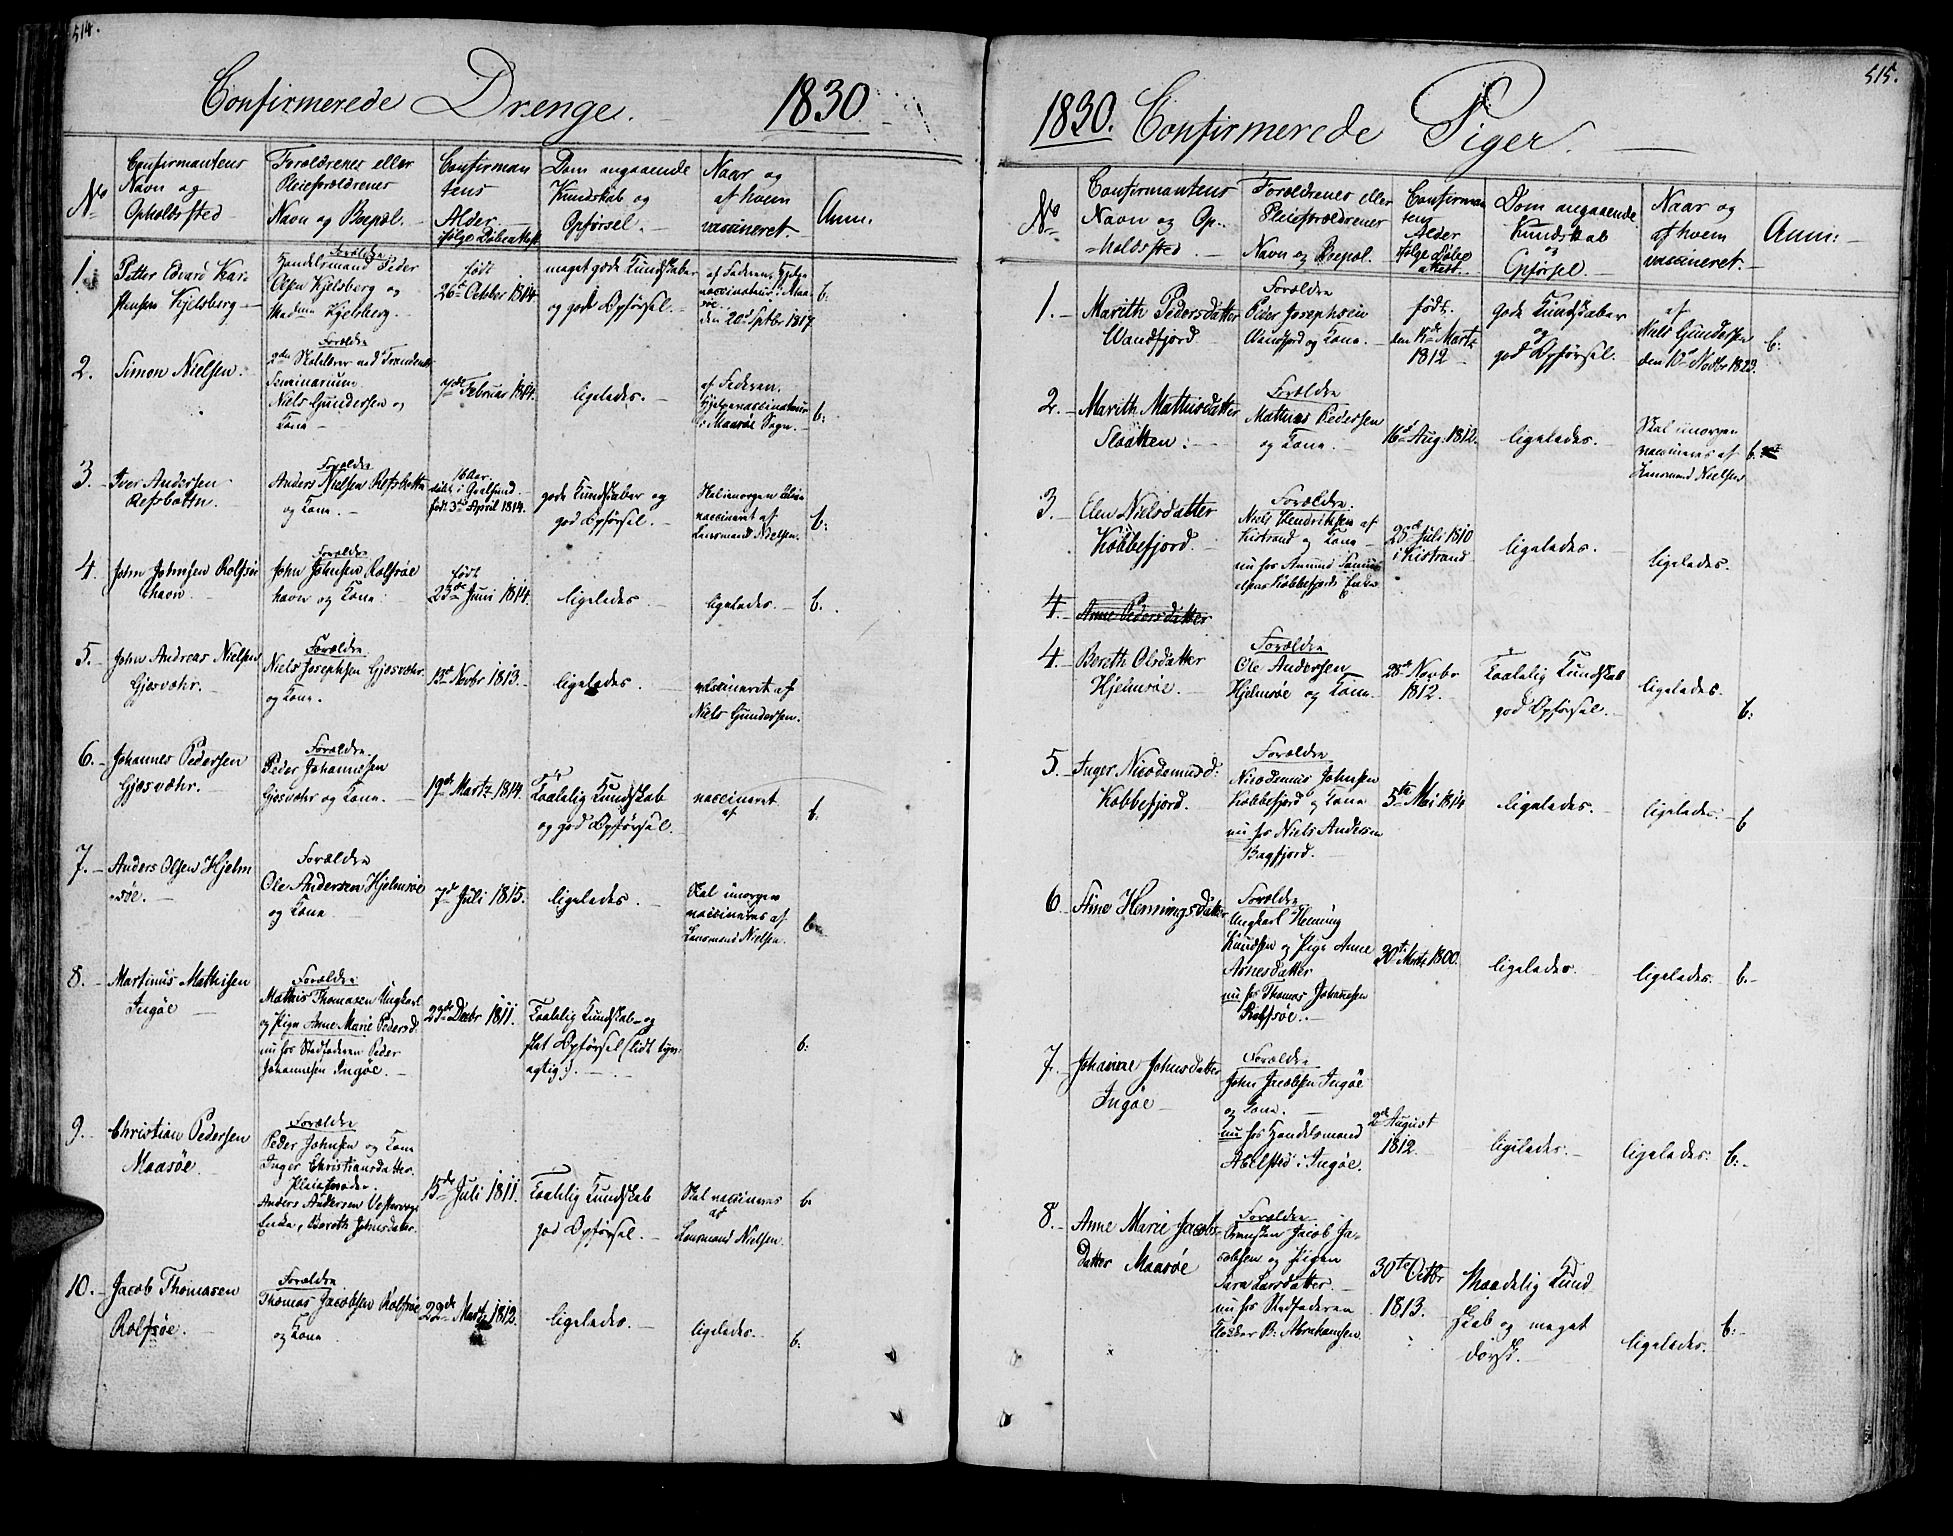 514.
Confirmerede Drenge. 1830
No
Confirmantens
Navn og
Opholdssted
Forældrenes eller
Pleieforældrenes
Navn og Bopæl.
Confirman
tens
Alder
ifølge Døbeattest
Dom angaaende
Kundskab og
Opførsel.
Naar og
af hvem
vaccineret.
Anm:
1. Petter Edvard Kar-
stensen Kjelsberg
Forældre
Handelsmand Peder
Olsen Kjelsberg og
Madame Kjelsberg.
født
26de October 1814
meget gode Kundskaber
og god Opførsel.
af Faderen, Hjelpe
vaccinateur i Maa-
søe
den 20de Septbr 1817
b:
2. Simon Nielsen.
Forældre
Skolelærer ved Trondenæs
Seminarium
Niels Gundersen og
Kone
7de Februar 1814.
ligeledes.
af Faderen,
Hjelpevaccinateur
i Maasøe Sogn.
b:
3. Iver Andersen
Refsbotn.
Forældre
Anders Nielsen Refsbotn
og Kone.
16 Aar
født 3die April 1814.
gode Kundskaber og
god Opførsel.
Skal imorgen blive
vaccineret af
Lensmand Nielsen.
b:
4. John Johnsen Rolfsøe
havn.
Forældre
John Johnsen Rolfsøe
havn og Kone.
født
23de Juni 1814.
ligeledes.
ligeledes.
b.
5. John Andreas Nielsen
Gjesvæhr.
Forældre
Niels Josephsen Gjesvæhr
og Kone.
13de Novbr 1813.
ligeledes.
vaccineret af
Niels Gundersen.
6. Johannes Pedersen
Gjesvæhr.
Forældre
Peder Johannesen
Gjesvæhr og Kone.
19de Martz 1814.
Taalelig Kundskab
og god Opførsel.
vaccineret
af
b:
7. Anders Olsen Hjelm
søe.
Forældre
Ole Andersen Hjelmsøe
og Kone
7de Juli 1815.
ligeledes.
Skal imorgen
vaccineres af
Lensmand Nielsen.
b:
8. Martinus Mathisen
Ingøe
Forældre
Mathis Thomasen Ungkarl
og Pige Anne Marie Pedersd.
nu hos Stedfaderen Peder
Johannesen Ingøe.
23de Decbr 1811.
Taalelig Kundskab og
slet Opførsel (lidt tyv-
agtig).
b:
9. Christian Pedersen
Maasøe.
Forældre
Peder Johnsen og Kone
Inger Christiansdatter.
Pleiemoder.
Anders Andersen
Enke, Bereth Johnsdatter.
15de Juli 1811.
Taalelig Kundskab
god Opførsel.
Skal vaccineres
af
Lensmand Nielsen.
b.
10. Jacob Thomasen
Rolfsøe.
Forældre
Thomas Jacobsen Rolfsøe
og Kone
22de Martz 1812.
ligeledes.
ligeledes.
b:
515.
1830. Confirmerede Piger.
No
Confirmantens
Navn og Op-
holdssted.
Forældrenes eller
Pleieforældrenes
Navn og Bopæl.
Confirman
tens
Alder
ifølge Døbe
attest.
Dom angaaende
Kundskab
og
Opførsel.
Naar og
af hvem
vaccineret.
Anm:
1. Marith Pedersdatter
Vandfjord
Forældre
Peder Josephsen
Vandfjord og Kone.
født
den 15de Martz
1812
gode Kundskaber
og
god Opførsel.
af
Niels Gundersen
den 10de Novbr 1823.
b:
2. Marith Mathisdatter
Slaatten.
Forældre
Mathias Pedersen
og Kone.
16de Aug. 1812.
ligeledes.
Skal imorgen
vaccineres af
Lensmand Nielsen
b.
3. Elen Nielsdatter
Kobbefjord.
Forældre.
Niels Hendriksen af
Kistrand og Kone
nu hos Amund
Kobbefjords Enke
20de Juli 1810
i Kistrand
ligeledes.
ligeledes.
4. Anne Pedersdatter
4. Bereth Olsdatter
Hjelmsøe.
Forældre
Ole Andersen
Hjelmsøe og Kone.
28de Novbr
1812.
Taalelig Kundskab
god Opførsel.
ligeledes.
b:
5. Inger Nicodemusd:
Kobbefjord.
Forældre
Nicodemus Johnsen
Kobbefjord og Kone
nu hos Niels Andersen
Bagfjord.
5te Mai 1814
ligeledes.
ligeledes.
b
6 Stine Henningsdatter
Forældre
Ungkarl Henning
Knudsen og Pige Anne
Arnesdatter
nu hos Thomas Johannesen
Rolfsøe.
30te Martz 1800.
ligeledes.
ligeledes.
b.
7. Johanne Johnsdatter
Ingøe
Forældre
John Jacobsen Ingøe
og Kone.
nu hos Handelsmand
Abelsted i Ingøe.
2de August
1812.
ligeledes.
ligeledes.
b:
8. Anne Marie Jacobs-
datter Maasøe
Forældre
Jacob Ja-
cobsen og Pigen
Sara Larsdatter.
nu hos Stedfaderen
Klokker B: Abrahamsen.
30te Octbr
1813.
Maadelig Kund
skab og meget
dorsk.
ligeledes.
b: